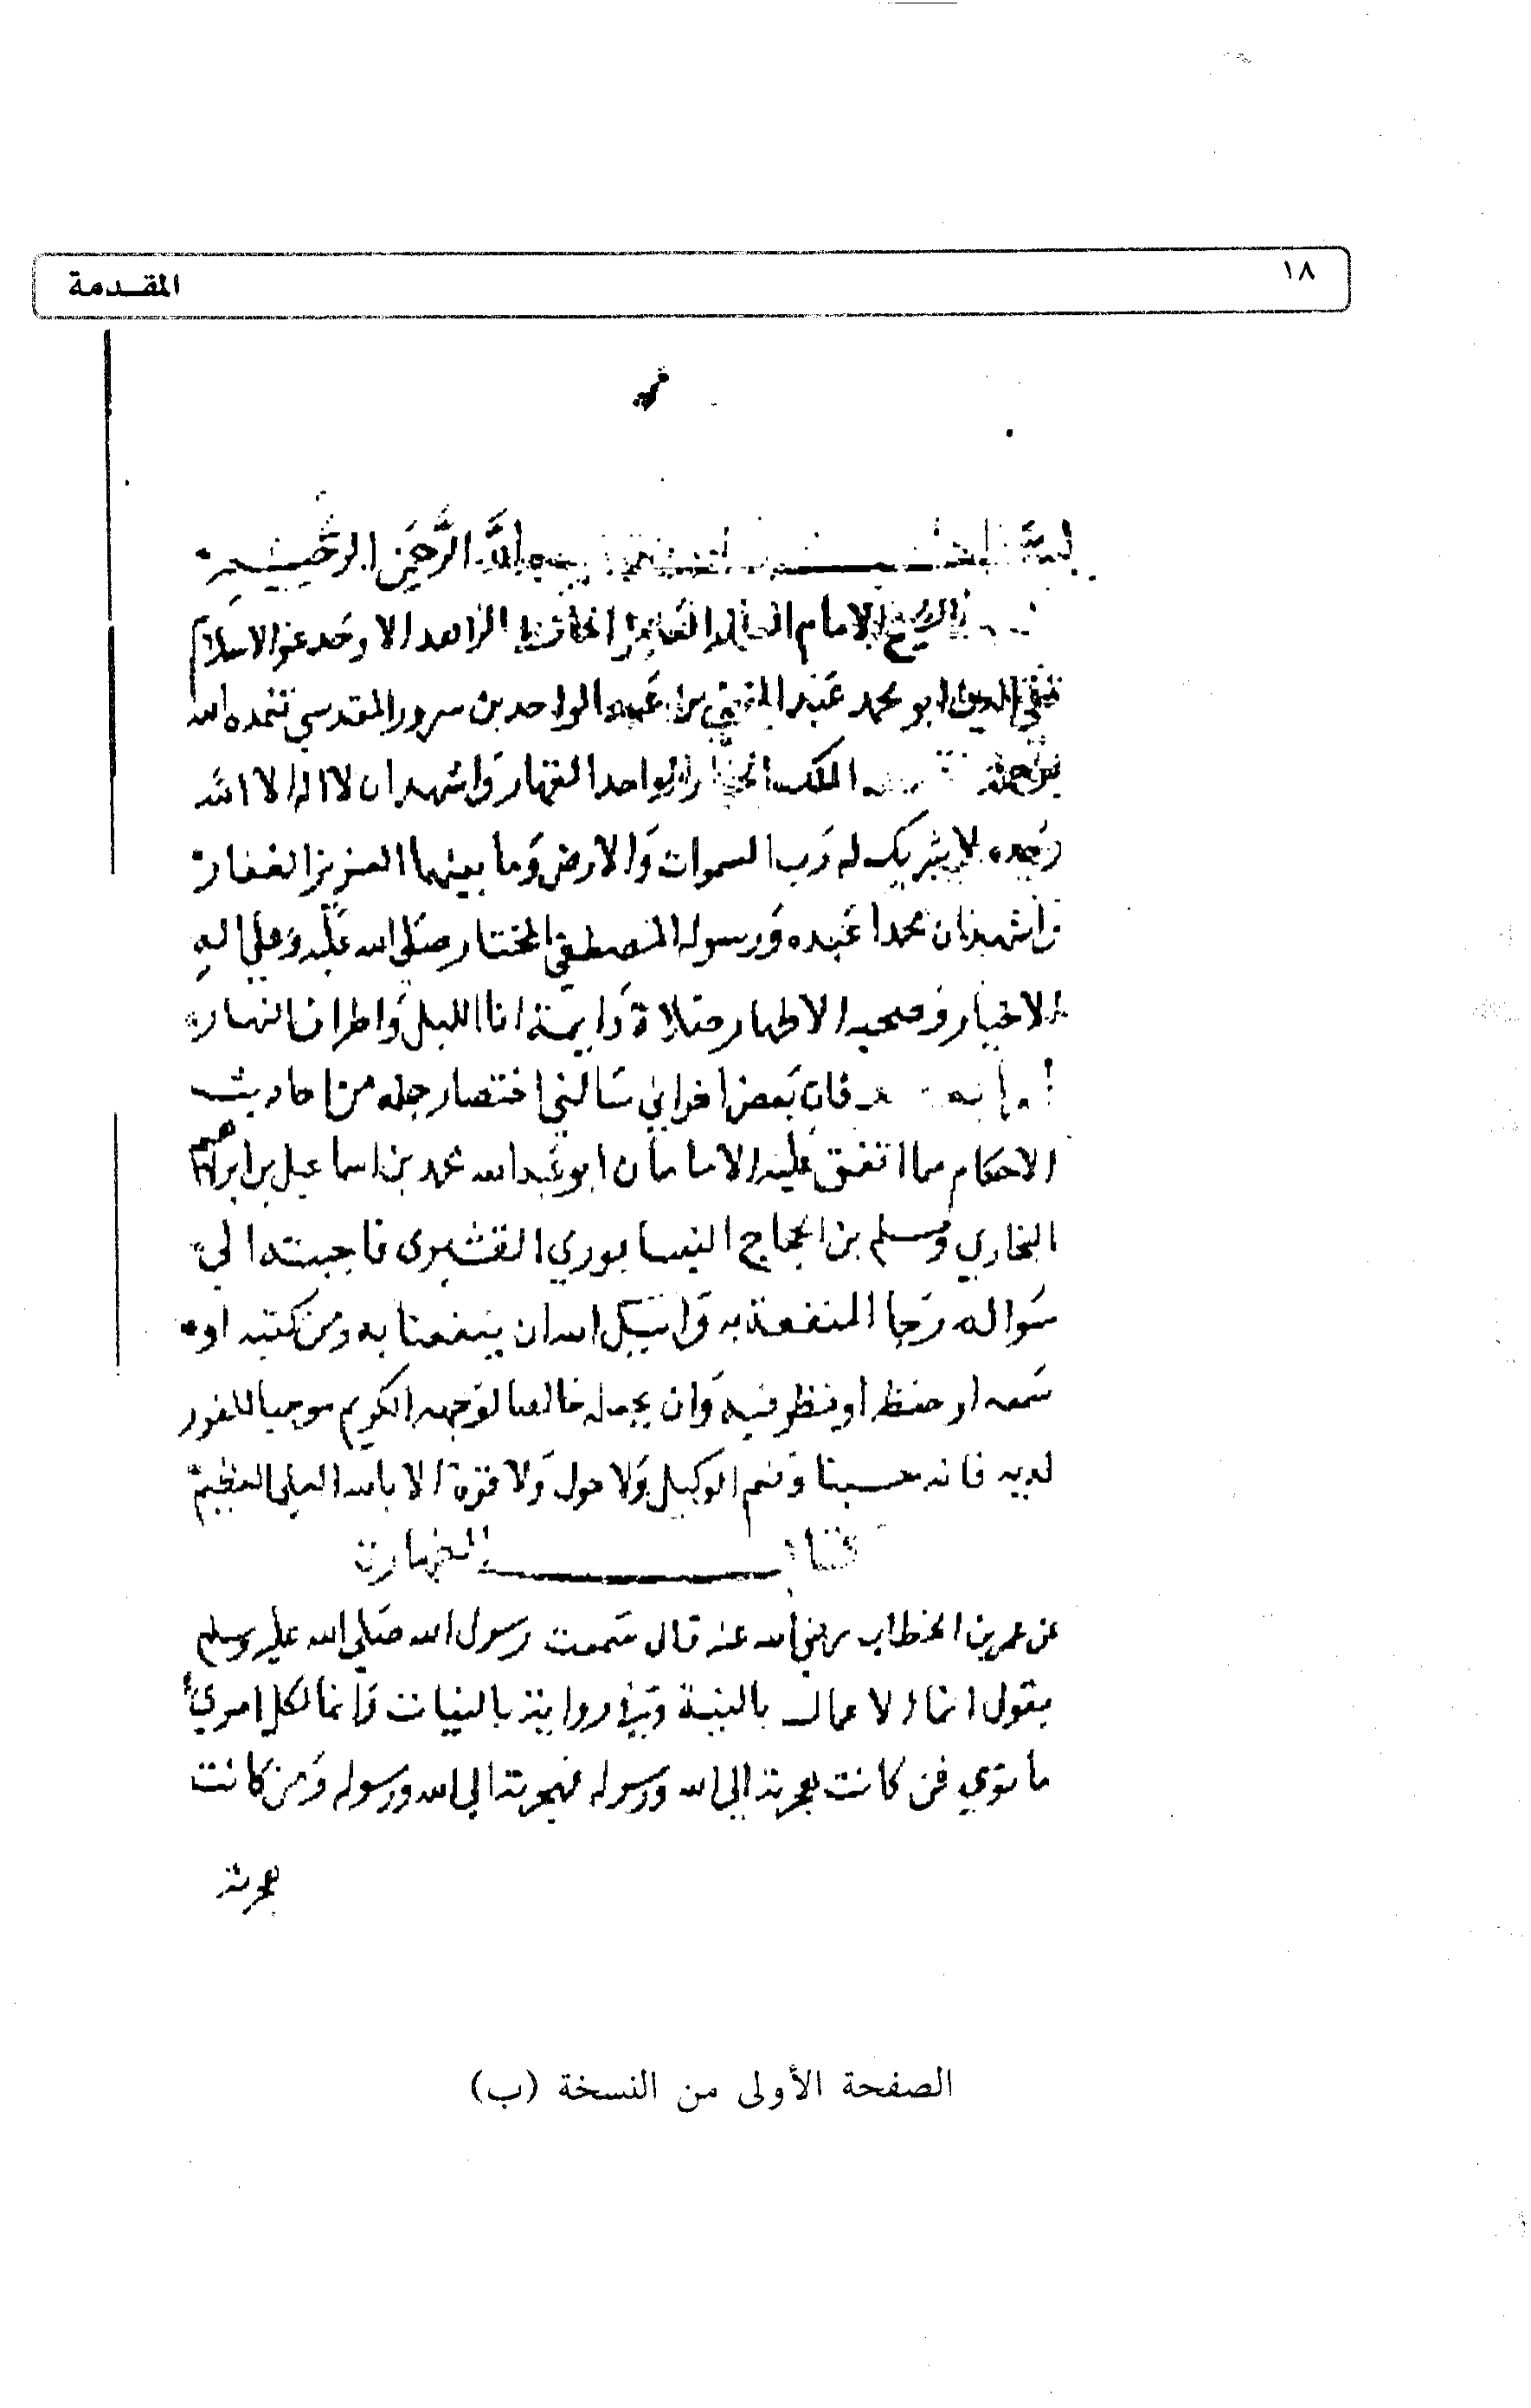 ١٨
المقدمة
الله الرحمن الرحيم
الشيخ الامام الحافظ الزاهد الاوحد عز الاسلام
تقي الدين ابو محمد عبد الغني بن عبد الواحد بن سرور المقدسي تغمده الله
برحمته الملك الجبار الواحد القهار واشهد ان لا اله الا الله
وحده لا شريك له رب السموات والارض وما بينهما العزيز الغفار
واشهد ان محمدا عبده ورسوله المصطفى المختار صلى الله عليه وعلى اله
الاخيار وصحبه الاطهار صلاة دايمة انا الليل واطراف النهار
فان بعض اخواني سالني اختصار جملة من احاديث
الاحكام مما اتفق عليه الامامان ابو عبد الله محمد بن اسماعيل بن ابراهيم
البخاري ومسلم بن الحجاج النيسابوري القشيري فاجبته الى
سواله رجا المنفعة به واسئل الله ان ينفعنا به ومن كتبه او
سمعه او حفظه او نظر فيه وان يجعله خالصا لوجهه الكريم موجبا للفوز
لديه فانه حسبنا ونعم الوكيل ولا حول ولا قوة الا بالله العلي العظيم
كتاب الطهارة
عن عمر بن الخطاب رضي الله عنه قال سمعت رسول الله صلى الله عليه وسلم
يقول انما الاعمال بالنية وفي رواية بالنيات وانما لكل امرئ
ما نوي فمن كانت هجرته الى الله ورسوله فهجرته الى الله ورسوله ومن كانت
هجرته
الصفحة الأولى من النسخة (ب)